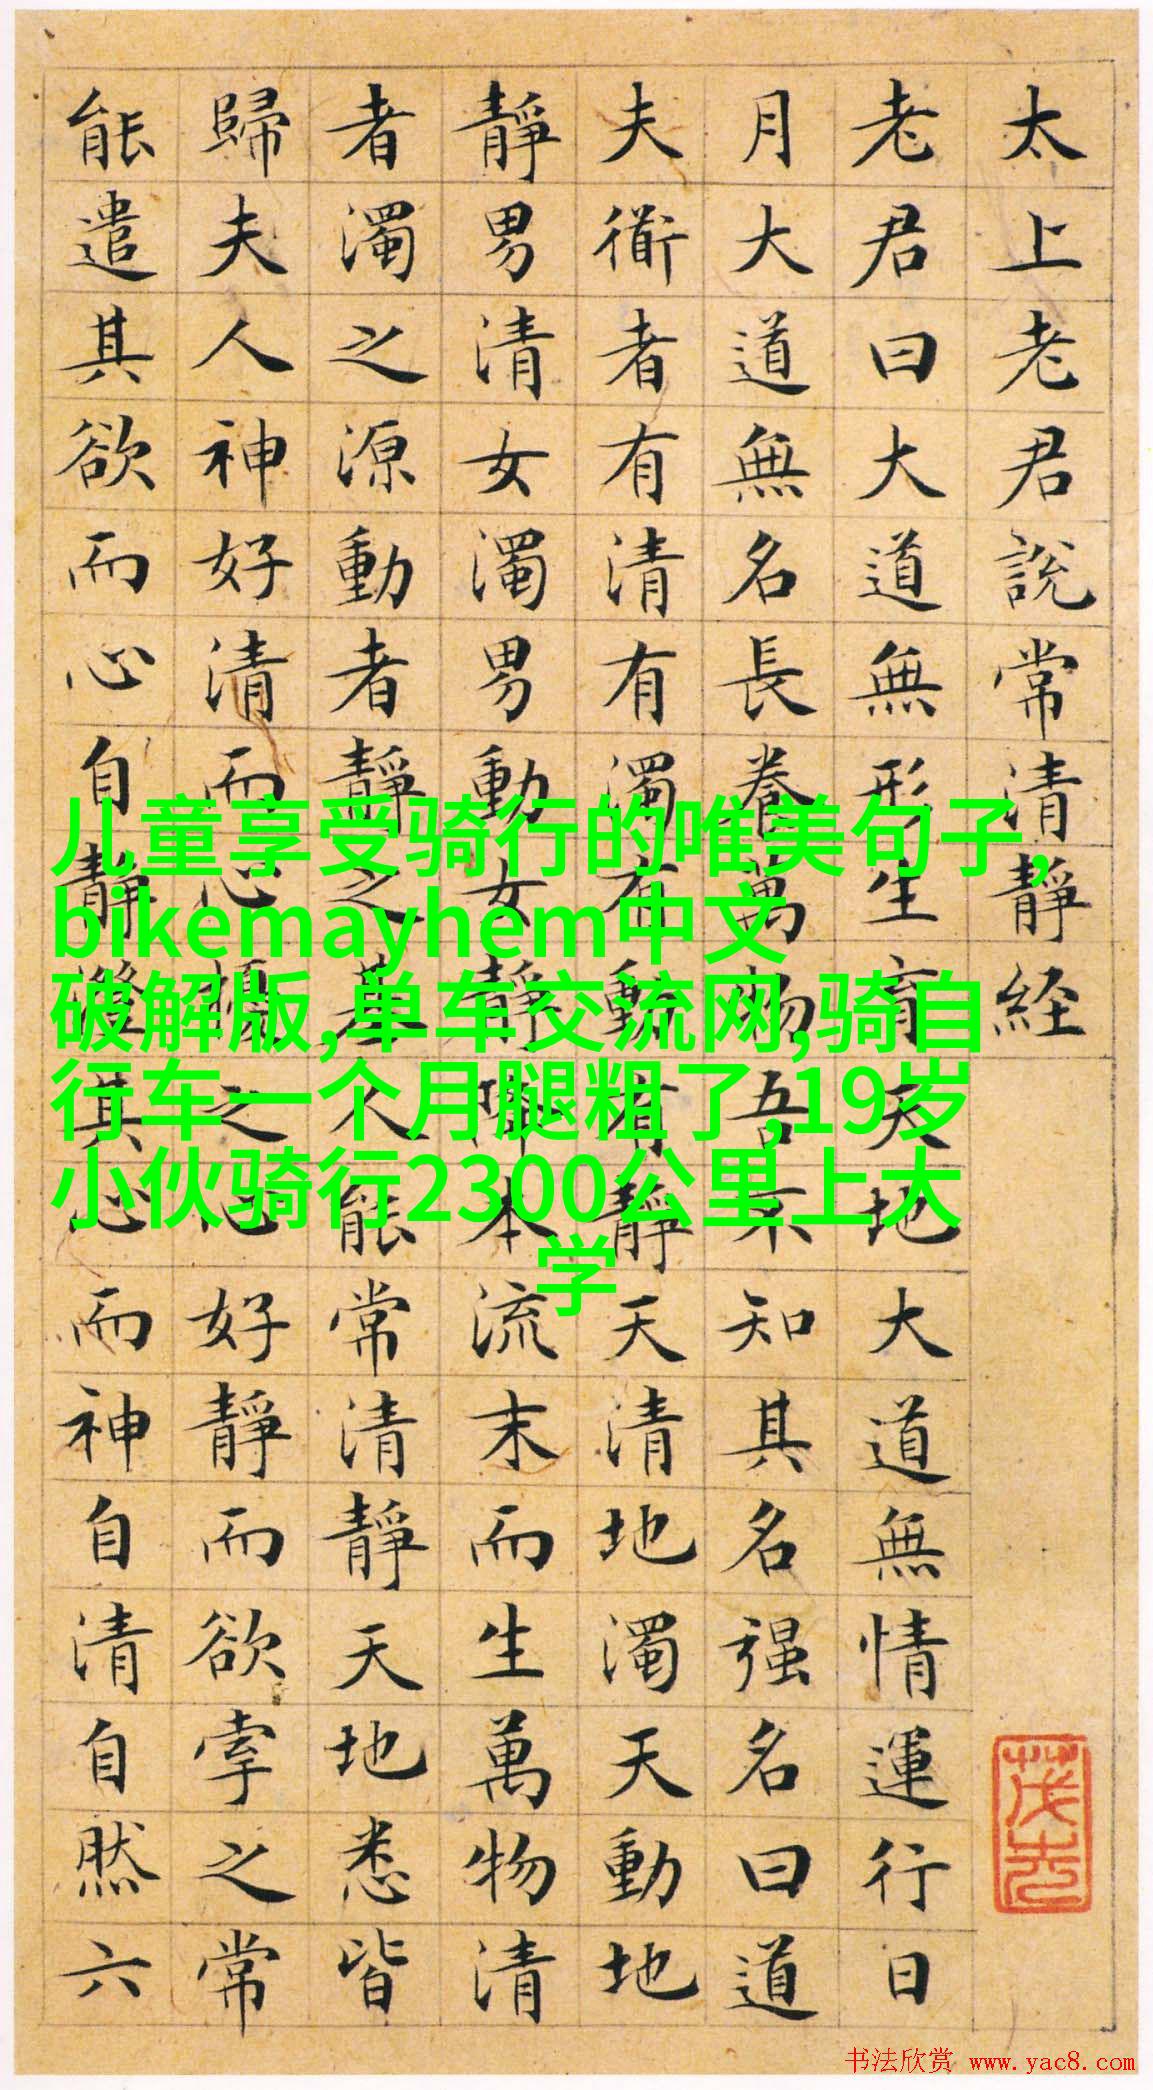 太上老君說常清靜経
老君曰大道無形生育天地大道無情運行日
月大道無名長養萬物吾不知其名强名曰道
夫衜者有清有濁有動有靜天清地濁天動地
靜男清女濁男動女靜降本流末而生萬物清
者濁之源動者靜之基人能常清靜天地悉皆
歸夫人神好清而心擾之心好靜而欲牽之常
能遣其欲而心自靜澄其心而神自清自然六
儿童享受骑行的唯美句子,
bikemayhem中文
破解版,单车交流网,骑自
行车一个月腿粗了,19岁
小伙骑行2300公里上大
学
书法欣赏 www.yac8.com